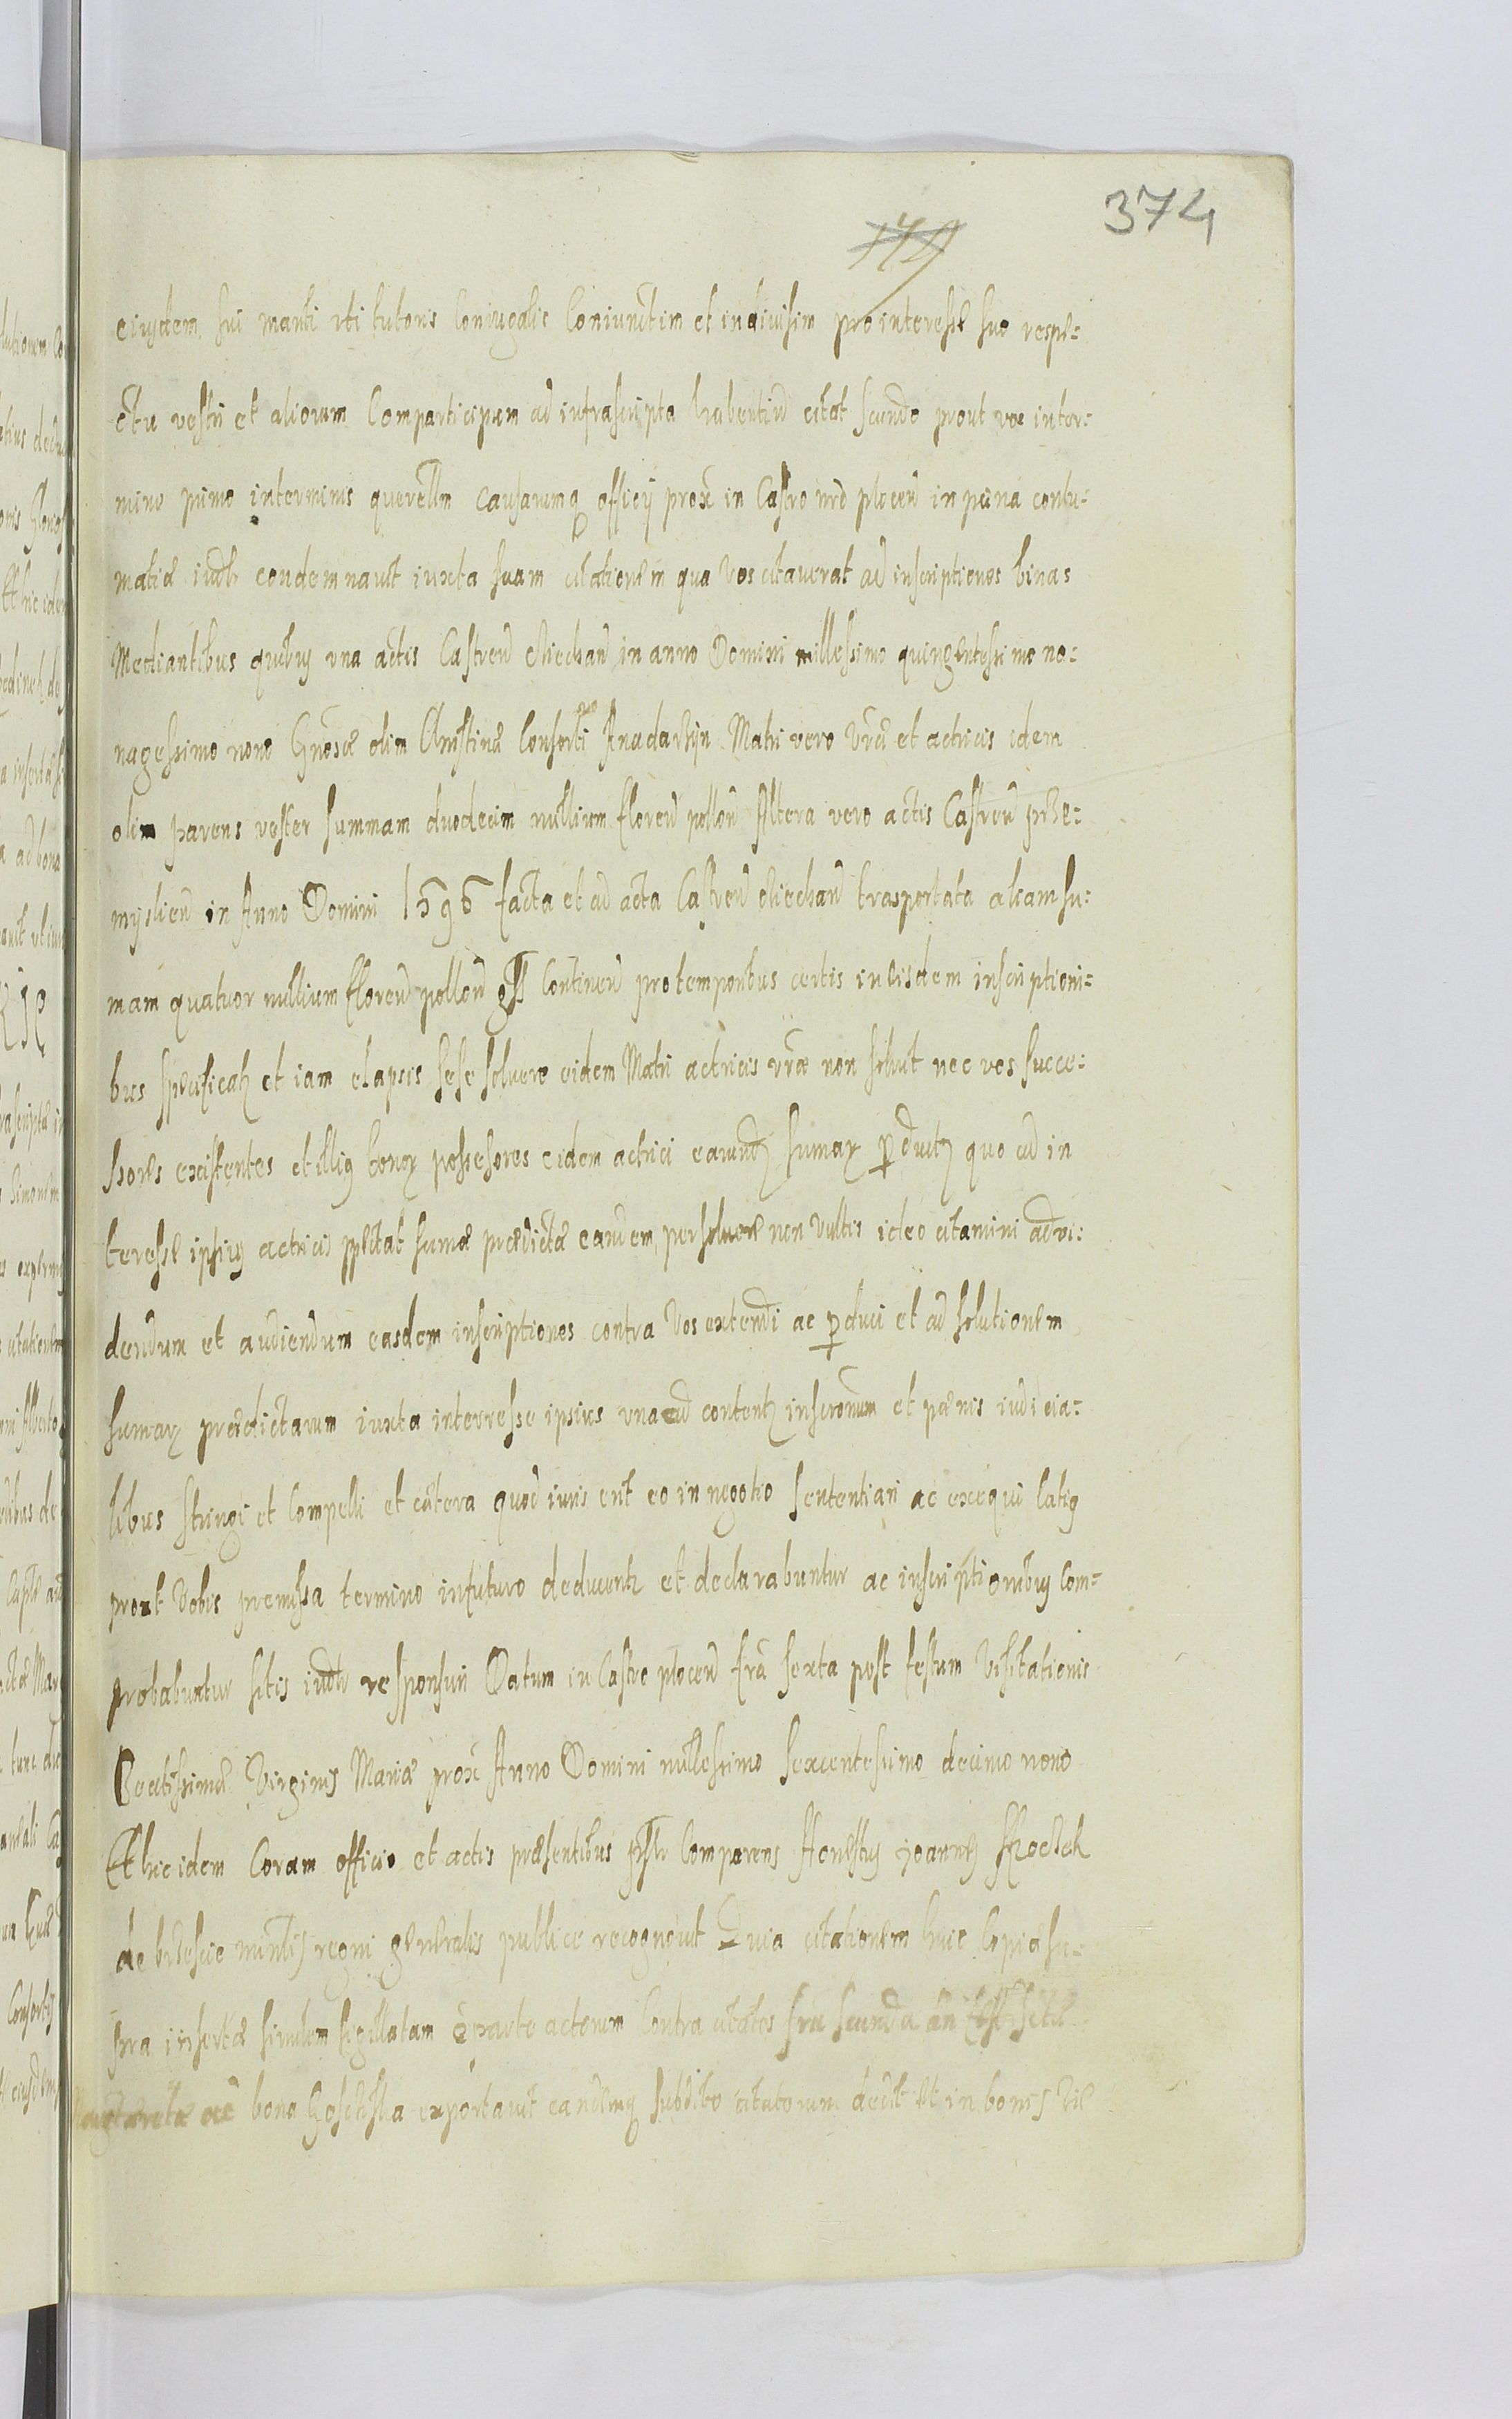 374
eiusdem sui mariti uti tutoris Coniugalis Coniunctim et indivisim pro interesse suo respe:
ctu vestri et aliorum Comparticipum ad infrascripta habentiu citat secundo prout vos inter:
mino primo interminis querellm causarumq officij prox in Castro nro plocen in pœna contu:
matiæ iudlr condemnavit iuxta suam citationem qua Vos citaverat ad inscriptiones binas
Mediantibus quibus una actis Castren Ciechan in anno Domini millessimo quingentessimo no:
nagessimo nono Gnosæ olim Christinæ Consorti Matri vero Vræ et actricis idem
olim parens vester summam duodecim millium floren pollon Altera vero actis Castren prze:
myslien in Anno Domini 1596 facta et ad acta Castren Ciechan trasportata aliam su:
mam quatuor millium floren pollon Continen pro temporibus certis in eisdem inscriptioni:
bus specificatis et iam elapsis sese solvere eidem Matri actricis vræ non soluit nec vos succe:
ssores existentes et illius bonor possessores eidem actrici earund sumar quo ad in
teresse ipsius actricis spectat sumæ prædictæ eandem persoluere non vultis ideo citamini ad vi:
dendum et audiendum easdem inscriptiones contra Vos extendi ac perduci et ad solutionem
sumar prædictarum iuxta interresse ipsius una ad content inscronum et pœnis iudicia:
libus stringi et Compelli et cætera quod iuris erit eo in negotio sententiari ac exequi latius
prout Vobis premissa termino infuturo deducentr et declarabuntur ac inscriptionibus Com:
probabuntur sitis iudlr responsuri Datum in Castro plocen fria sexta post festum Visitationis
Beatissimæ Virginis Mariæ prox Anno Domini millessimo sexcentessimo decimo nono
Et hic idem Coram officio et actis præsentibus prsltr Comparens Honestus Joannes
de minlis regni generalis publice recognovit Quia citationem huic Copiæ su:
pra insertæ similem sigillatam e parte actorum Contra citatos fria secunda an festi sctæ
Margaretæ ad bona exportavit eandemq subdito citatorum dedit et in bonis